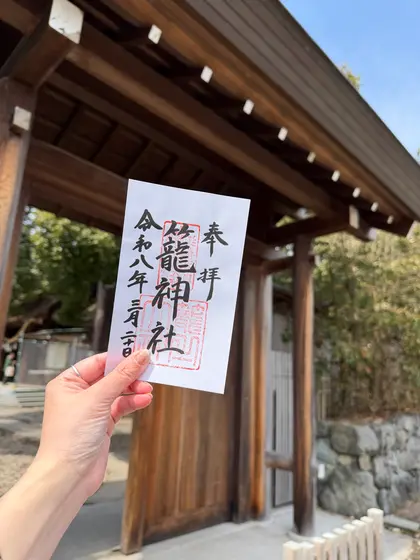 奉拝
籠神社
令和八年三月二十日